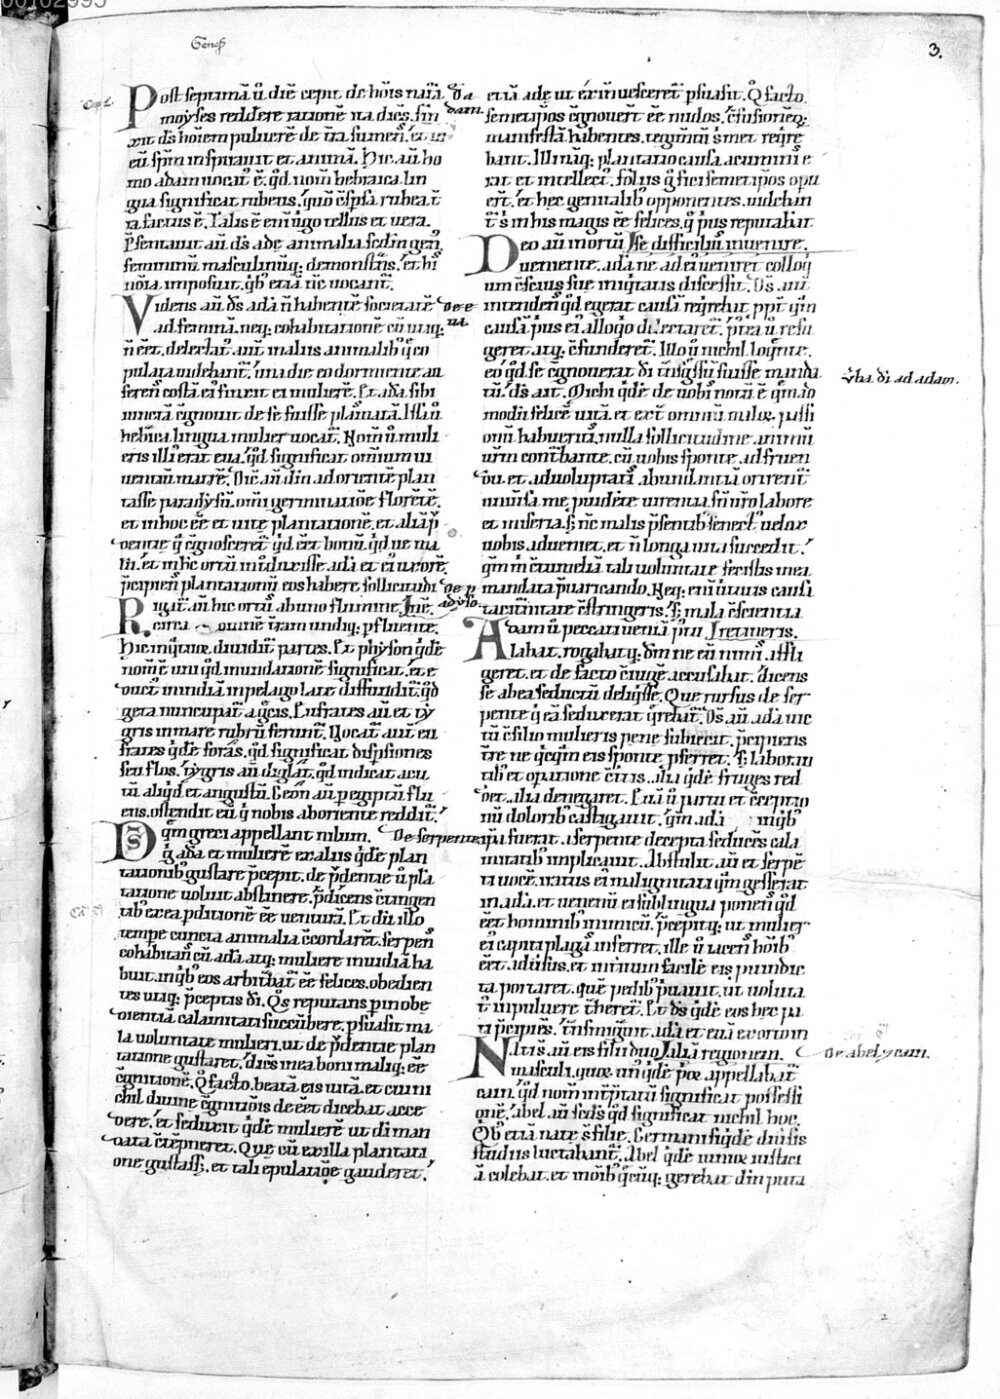 00102995
Geneſ
3.
Cap I.
Post septimā ū diē cepit de hoīs natā
moẏses reddere rationē ita dicēs. fin
xit dſ hoīem puluerē de tra sumēſ. et in
eū spm inspirauit et animā. Hic aū ho
mo adam uocat ē. qd nom̄ hebraica lin
gua significat rubens. quō cspsa rubea t
ra factus ē. Talis ē eni ugo tellus et uera.
Psentauit aū dſ ade animalia sedm gen
femininū masculinūq; demonstās. et hiſ
nōia imposuit. qb etiā nc uocant.
Videns aū dſ adā n habentē societatē
ad feminā. neq; cohabitationē cū uiq;
n eēt. delectat aut maliis animalib q co
pulata uidebant. una die eo dormiente au
ferens costā ei finxit ei mulierē. Et adā sibi
iunctā cgnouit de se fuisse plasmatā. Ista ū
hebica lingua mulier uocat. Nom ū muli
eris illi erat eua. qd significat omium ui
uentiū matrē. Dic aū dm ad orientē plan
tasse paradysū. omi germinatiōe florētē.
et in hoc eē et uite plantationē. et aliā p
dentie q cgnosceret qd eēt bonū. qd ue ma
lū. et in hc ortū introduxisse adā et ei uxorē.
pcipiens plantationū eos habere sollicitudi
Rigat aū hic ortus ab uno flumine. Inē.
circa omnē tram undiq; pfluente.
Hic in qtuor diuidit partes. Et physon qdē
nomē ē uni qd inundationē significat. et e
ductus in indiā in pelago late diffundit. qd
geta nuncupat a gcis. Eufrates aū et ty
gris in mare rubrū ferunt. Vocat aut eu
frates qdē foras. qd significat dispsiones
seu flos. tygris aū diglat. qd indicat acu
tū aliqd et angustū. Geon aū p egiptū flu
ens. ostendit eū q nobis ab oriente reddit.
Dſ qm greci appellant nilum.
g adā et mulierē ex aliis qdē plan
tationib gustare pcepit. de pdentie ū pla
tatione uoluit abstinere. pdicens ctingen
tib ex ea pditionē eē uenturā. Et dū illo
tempe cuncta animalia ccordarēt. serpens
cohabitans cū adā atq; muliere inuidiā ha
buit. in qb eos arbitbat eē felices. obedien
tes utiq; pceptis di. Qs reputans p inobe
dientiā calamitati succūbere. psuasit ma
la uoluntate mulieri. ut de pdentie plan
tatione gustaret. dicēs in ea boni maliq; eē
cgnitionē. Q facto. beatā eis uitā. et cui ni
chil diuine cgnitiōis deēēt dicebat acce
dere. et seduxit qdē mulierē ut di man
data ctēpneret. Que cū ex illa plantati
one gustasſ. et tali epulatiōe gauderet.
Da
dam.
De e
ua.
De p
adyso.
De serpente
etiā ade ut ex eo uesceret psuasit. Q facto.
semetipos cgnouert eē nudos. cfusionēq;
manifestā habentes. tegmtū smet reqre
bant. Illi naq; plantatio causa acuminis e
rat et intellect. foliis g fici semetipos opu
ert. et hec genitalib opponentes. uidebant
t s in his magis eē felices. q pus reputabat
Deo aū mortū se difficiliū inuenire.
ueniente. adā ne ad eū ueniret colloq
um cscius sue iniqtatis discessit. Dſ aū
intendens qd egerat causā reqrebat. ppt qm
causā pus ei alloqo delectaret. postea ū refu
geret. atq; cfunderet. Illo ū nichil loqnte.
eo qd se cgnouerat di tnsgssū fuisse manda
tū. dſ ait. Michi qdē de uobis notū ē qmad
modū felicē uitā et extra omniū malor passi
onū haberetis. nulla sollicitudine animū
urm conturbante. cū uobis sponte ad fruen
dū. et ad uoluptatis abundantiā orirent
uniuersa. me puidere utentia. sn uro labore
et miseria. s nc malis psentib senect uelox
uobis adueniet. et n longa uita succedit.
qm in ctumeliā tali uoluntate fecistis mea
mandata puaricando. Neq; eni uirtutis causa
taciturnitate cstringeris. s mala cscientia
Adam ū peccati ueniā petiū Irenineris.
labat. rogabatq; dm ne eū nimis affli
geret. et de facto ciugē accusabat. dicens
se ab ea seductū deliqsse. Que rursus de ser
pente q eā seduxerat qrebat. Dſ aū adā uic
tū csilio mulieris pene subiecit. pcipiens
tre ne qcqm eis sponte pferret. s laboran
tib et opatione tritis. alia qdē fruges red
det. alia denegaret. Euā ū partu et cceptio
nū dolorib castigauit. qm adā in qb
ipa fuerat. i serpente decepta seducēs cala
mitatib implicauit. Abstulit aū et serpē
ti uocē. iratus ei malignitati qm gesserat
in adā. et uenenū ei sub lingua ponens qd
eēt hominib inimicū. pcepitq; ut mulier
ei capiti plagas inferret. ille ū iacens hoīb
eēt aduersus. et interitum facile eis puindic
ta portaret. quē pedib puauit. ut uoluta
t in puluere theret. Et dſ qdē eos hec pa
ti pcipiēs. tnsmigrauit. adā et euā ex ortum
Natis aū eis filii duo Jaliā regionem.
masculi. quor un qdē por appellabat
cain. qd nom intptatū significat possessi
onē. abel aū secds qd significat nichil hoc.
Qb etiā nate s filie. Germani siqdē diuersis
studiis luctabant. Abel qdē minor iustici
ā colebat. et in oīb qcuq; gerebat dm puta
Vba di ad adam.
De abel et cain.